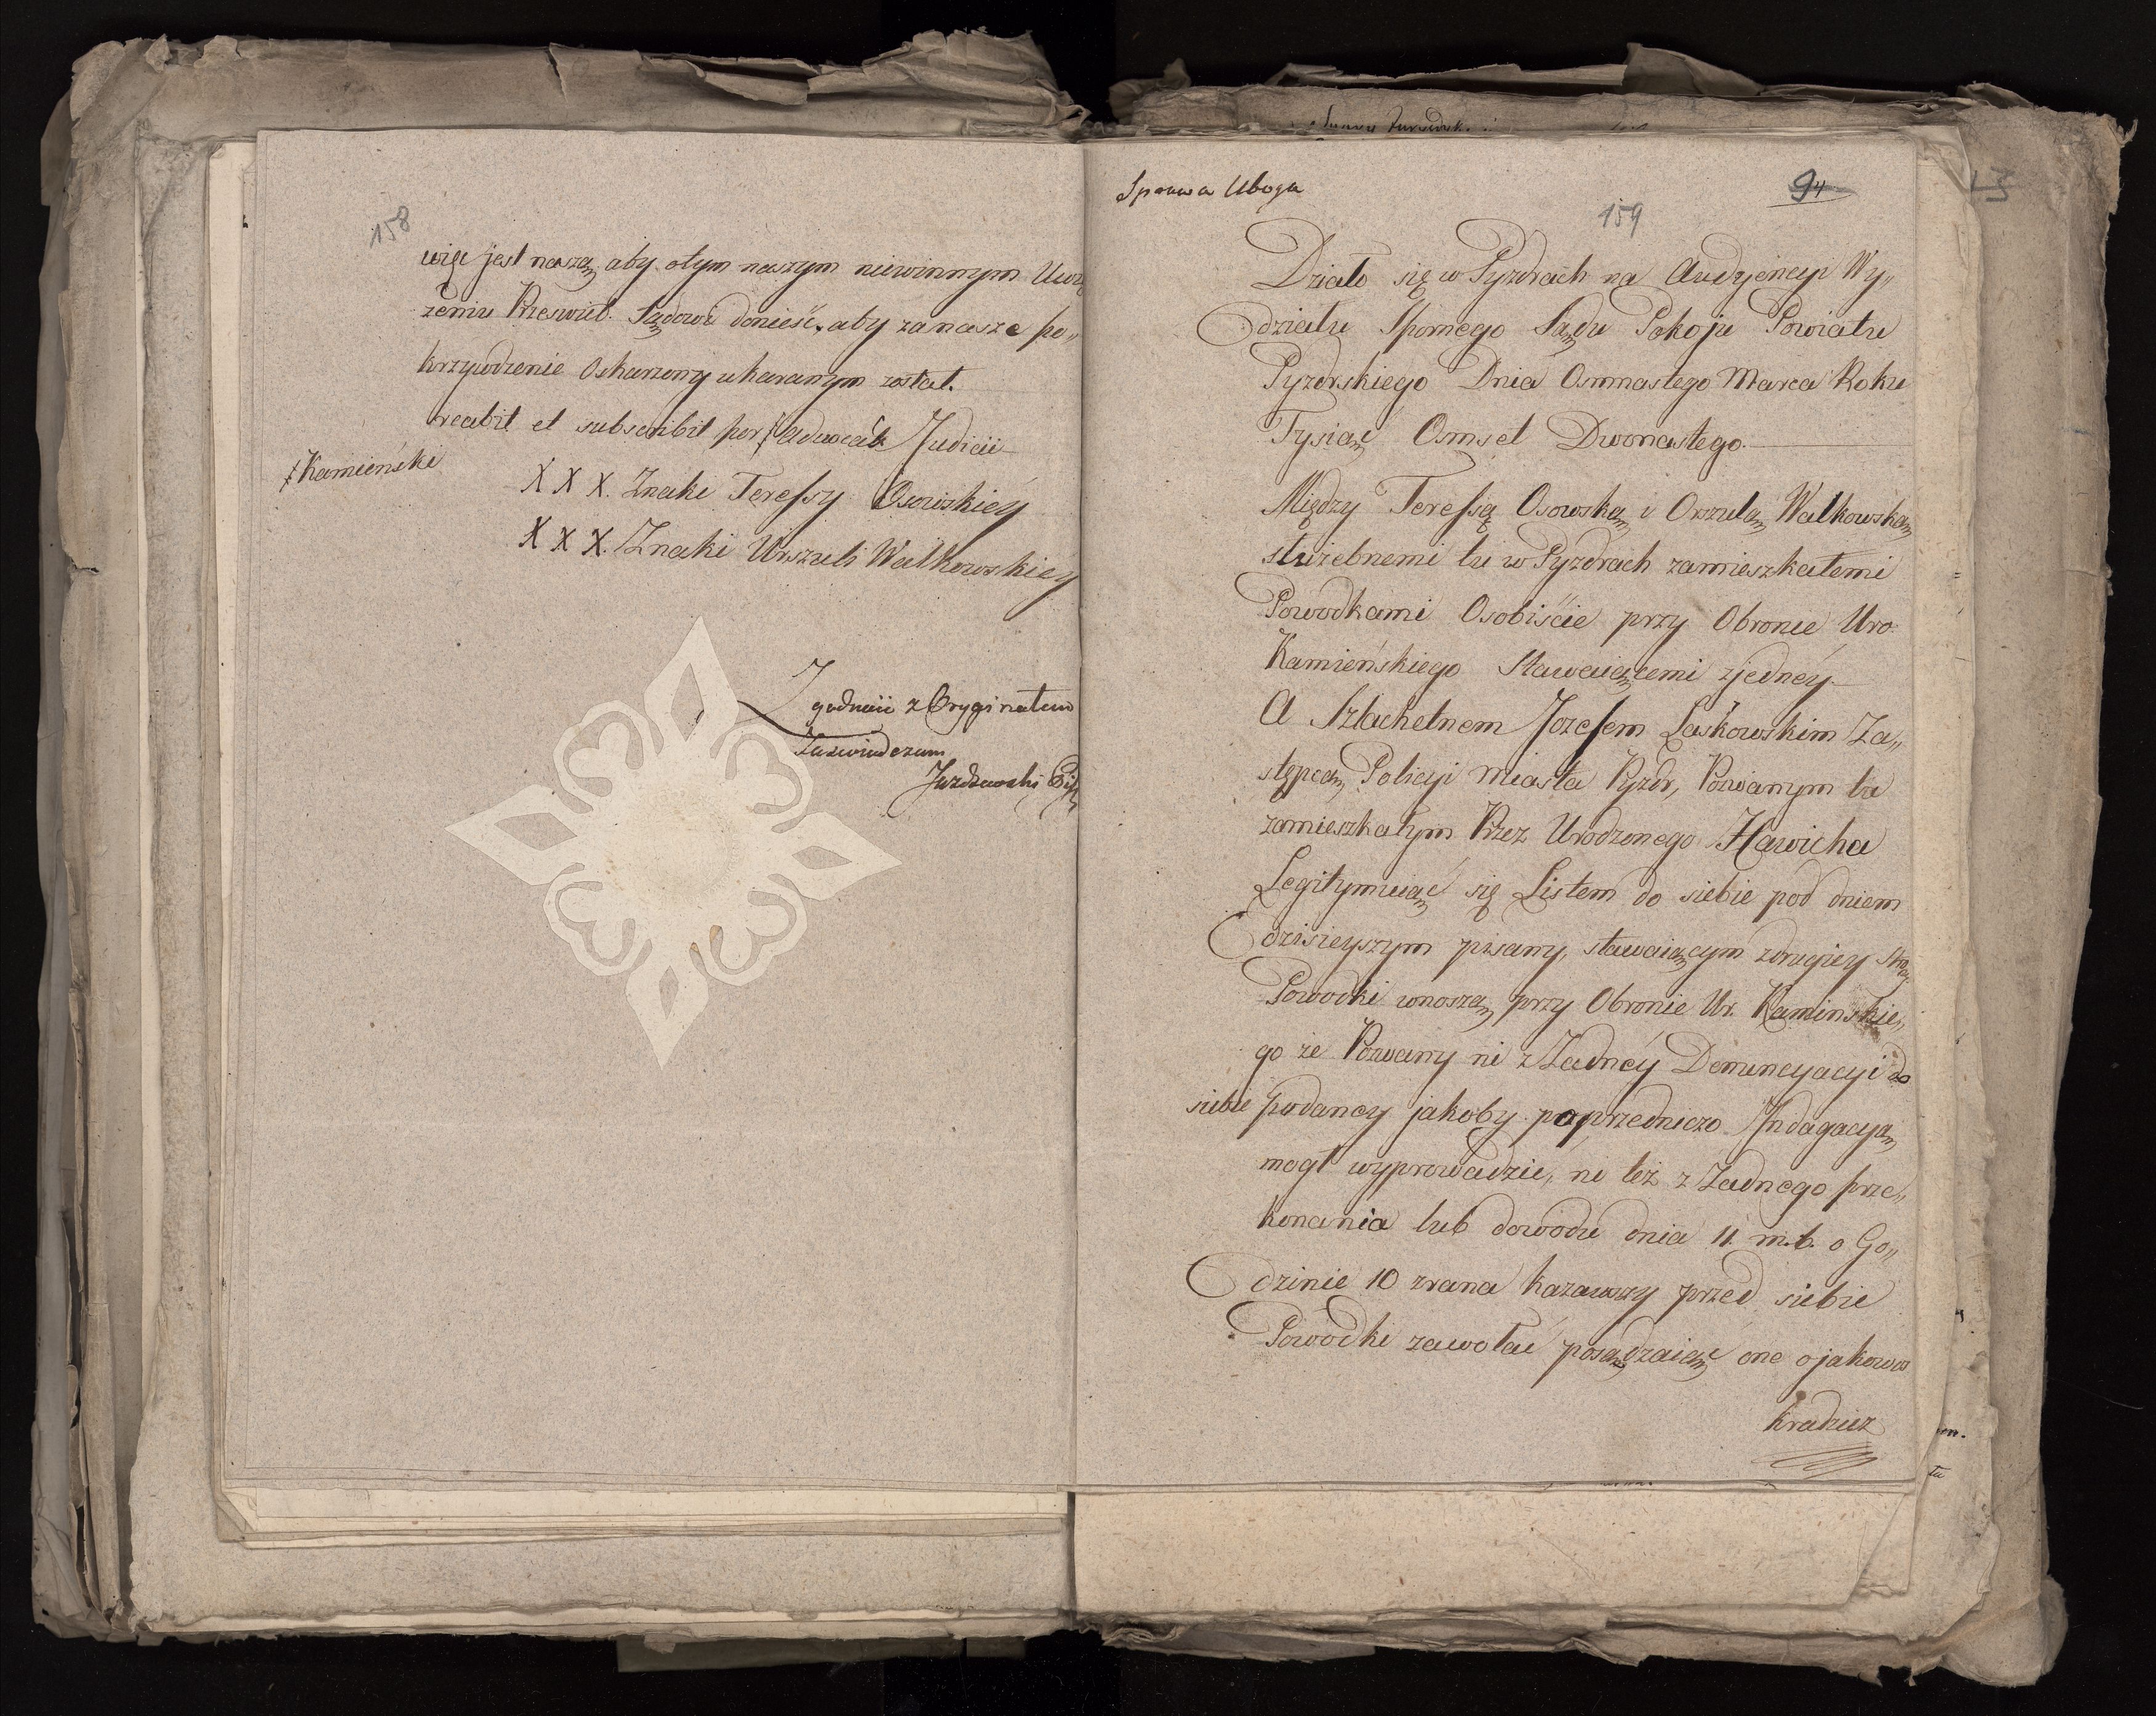 158
więc jest naszą, aby o tym naszym niewinnym Uwię
zeniu Prześwięt. Sądowi donieść, aby za nasze po„
krzywdzenie Oskarzony ukaranym został.
recabit et subscribit per ƒ advocat Judicii
ƒ Kamieński
X X X. Znaki Teressy Osowskiey
X X X. Znaki Urszuli Walkowskiey
Zgodność z Oryginałem
Zaswiadczam
Sprawa Uboga
94
159
Działo się w Pyzdrach na Audyencyi Wy„
działu Spornego Sądu Pokoju Powiatu
Pyzdrskiego Dnia Osmnastego Marca Roku
Tysiąć Osmset Dwonastego.
Między Teressą Osowską i Orszulą Walkowską
służebnemi tu w Pyzdrach zamieszkałemi
Powodkami Osobiście przy Obronie Uro.
Kamieńskiego Stawaiącemi z jedney
A Szlachetnem Jozefem Laskowskim Za„
stępcą Policyi Miasta Pyzdr, Pozwanym tu
zamieszkałym Przez Urodzonego Hawicha
Legitymuiąć się Listem do siebie pod dniem
dzisieyszym pisany, stawaiącym z drugiey stro
Powodki wnoszą, przy Obronie Ur. Kaminskie„
go że Pozwany ni z Żadney Denuncyacyi do
siebie podaney jakoby poprzedniczo Indagacyą
mogł wyprowadzić, ni też z Żadnego prze„
konania lub dowodu dnia 11. m. b. o Go„
dzinie 10 zrana kazawszy przed siebie
Powodki zawołać posądzaiąć one o jakowa
kradziez